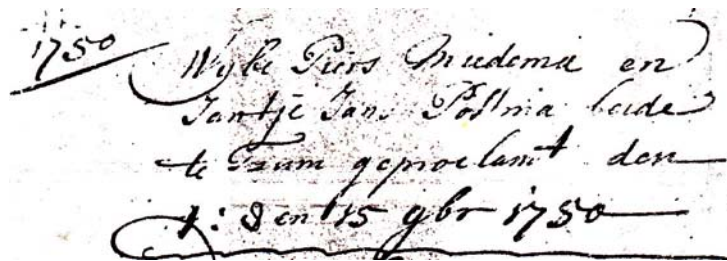 1750
Wybe Piers Miedema en
Jantje Jans Postma beide
te Tzum geproclamt den
1: 8 en 15 9br 1750